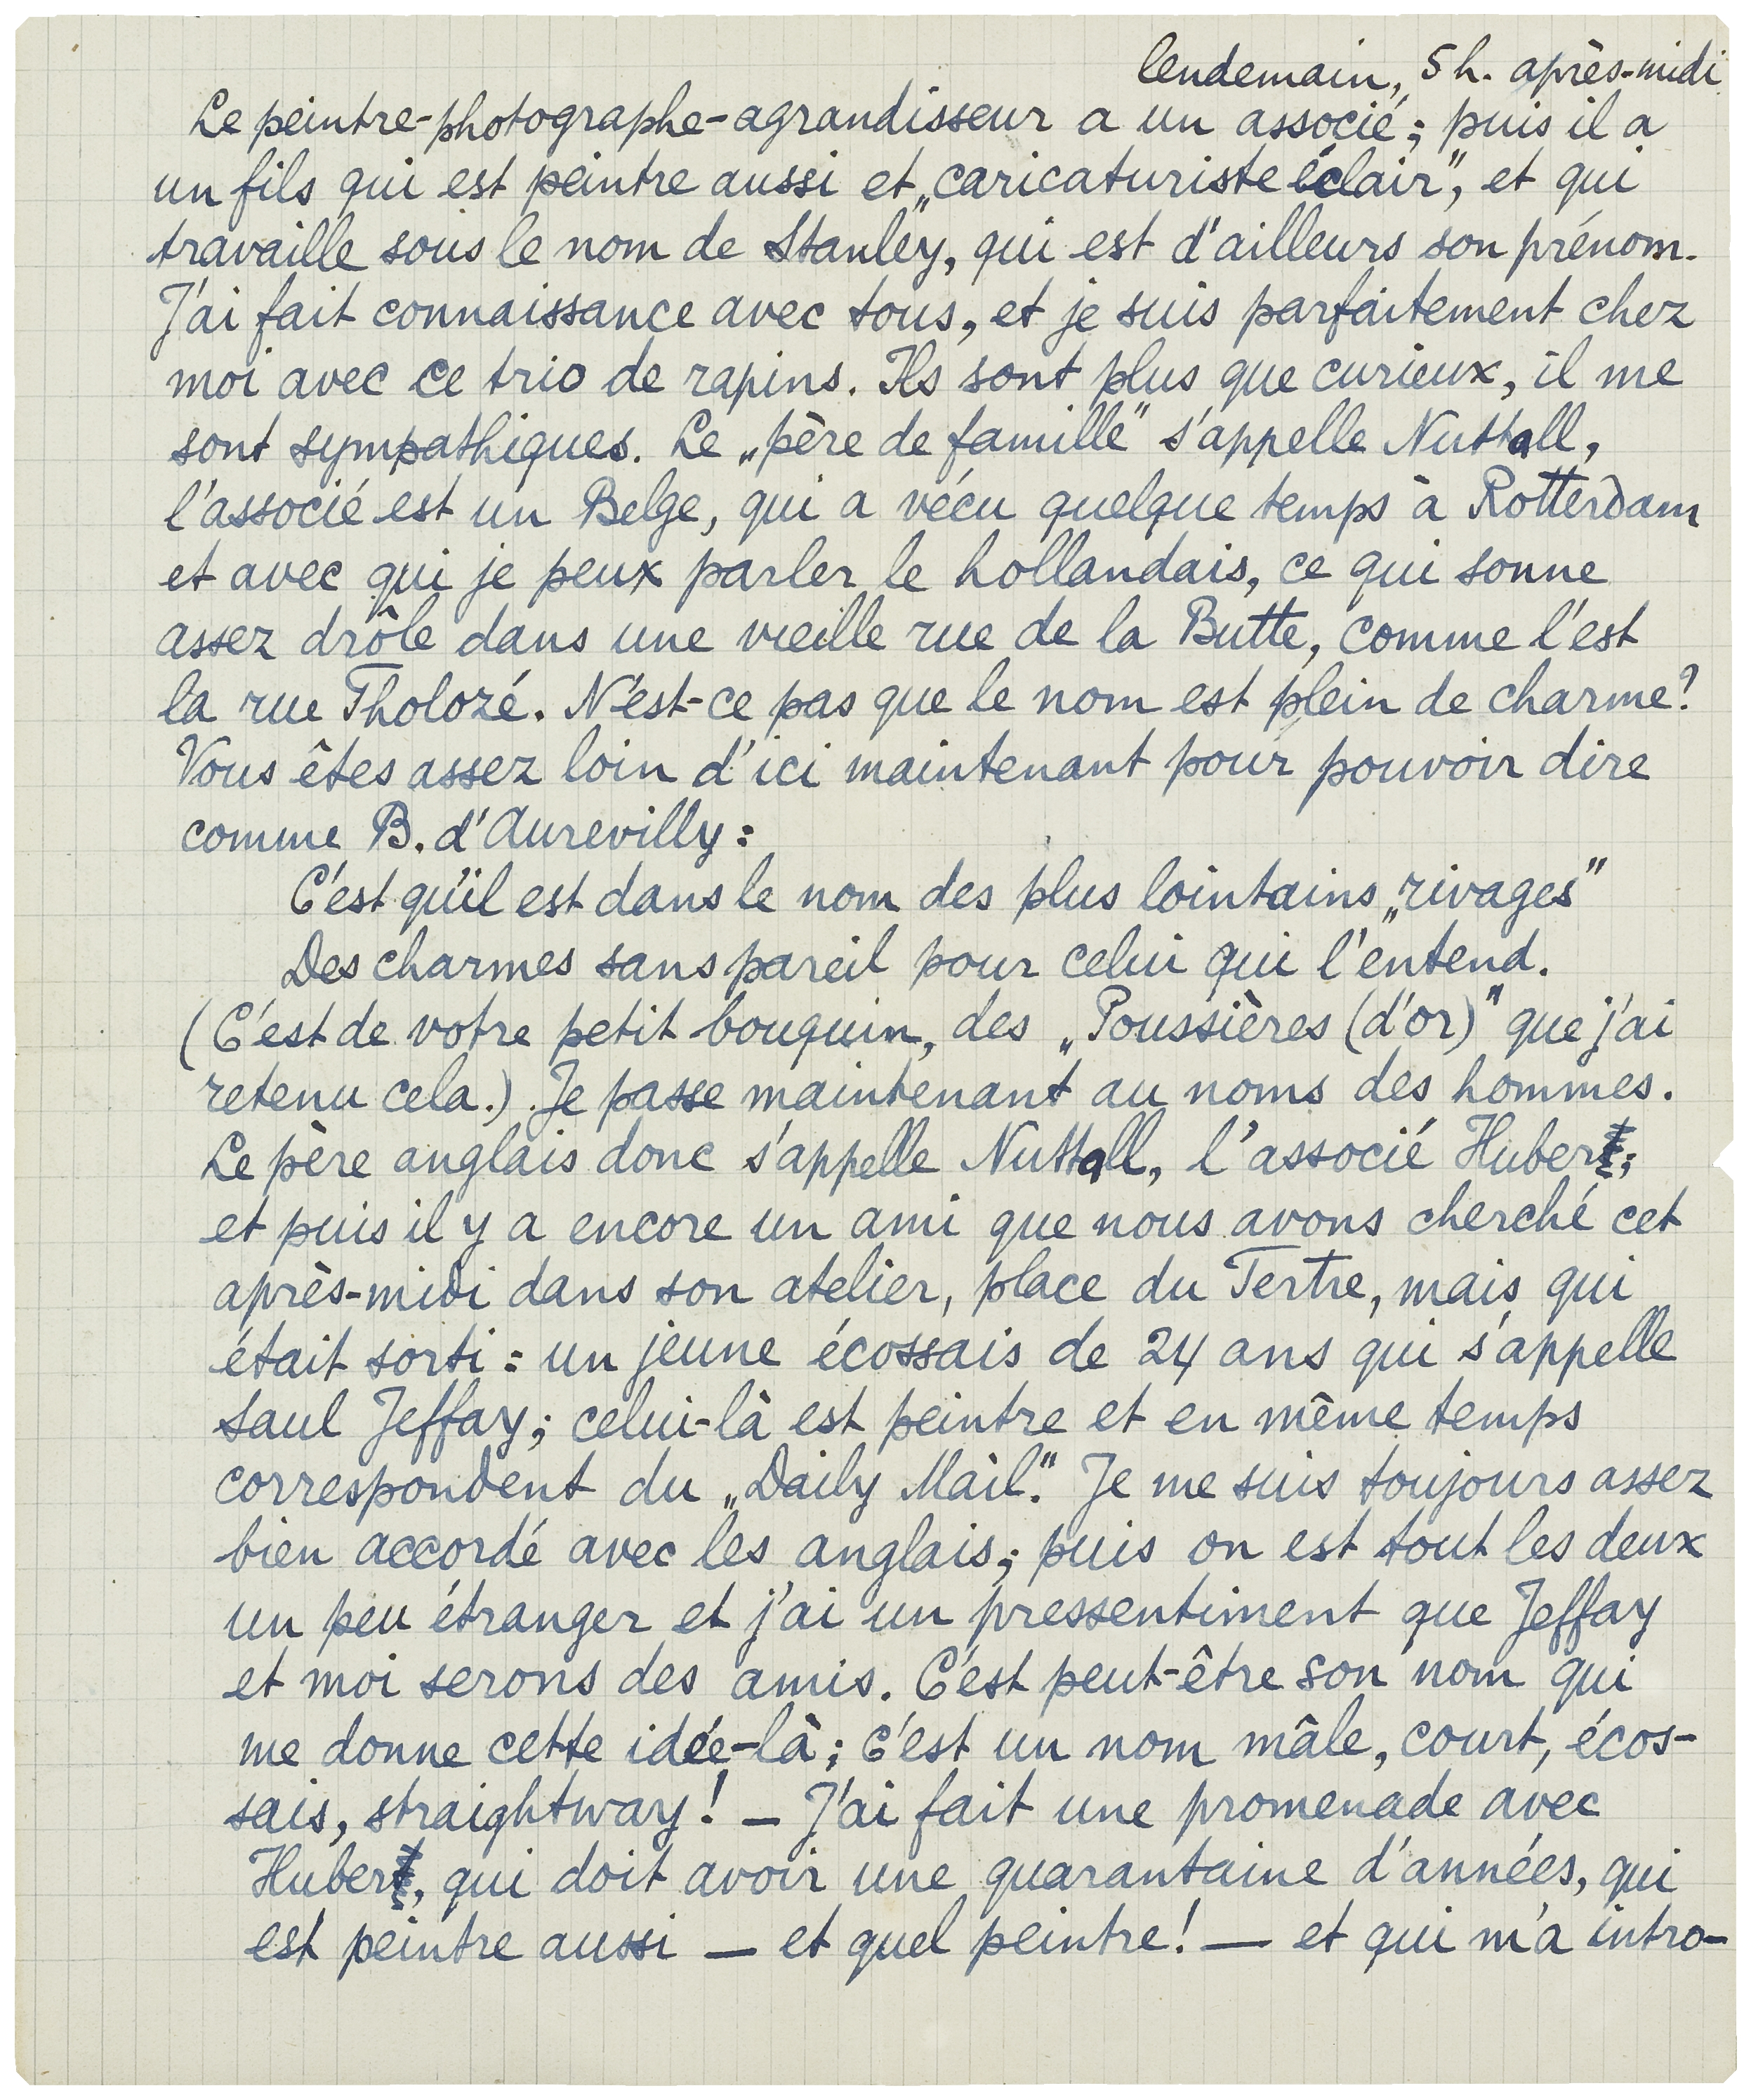 lendemain, 5 h. après-midi
Le peintre-photographe-agrandisseur a un associé; puis il a
un fils qui est peintre aussi et „caricaturiste éclair”, et qui
travaille sous le nom de Stanley, qui est d'ailleurs son prénom.
J'ai fait connaissance avec tous, et je suis parfaitement chez
moi avec ce trio de rapins. Ils sont plus que curieux, il me
sont sympathiques. Le „père de famille” s'appelle Nuttall,
l'associé est un Belge, qui a vécu quelque temps à Rotterdam
et avec qui je peux parler le hollandais, ce qui sonne
assez drôle dans une vieille rue de la Butte, comme l'est
la rue Tholozé. N'est-ce pas que le nom est plein de charme?
Vous êtes assez loin d'ici maintenant pour pouvoir dire
comme B. d'Aurevilly:
C'est qu'il est dans le nom des plus lointains „rivages”
Des charmes sans pareil pour celui qui l'entend.
(C'est de votre petit bouquin, des „Poussières (d'or)” que j'ai
retenu cela.) Je passe maintenant au noms des hommes.
Le père anglais donc s'appelle Nuttall, l'associé Huber;
et puis il y a encore un ami que nous avons cherché cet
après-midi dans son atelier, place du Tertre, mais qui
était sorti: un jeune écossais de 24 ans qui s'appelle
Saul Jeffay; celui-là est peintre et en même temps
correspondent du „Daily Mail”. Je me suis toujours assez
bien accordé avec les anglais; puis on est tout les deux
un peu étranger et j'ai un pressentiment que Jeffay
et moi serons des amis. C'est peut-être son nom qui
me donne cette idée-là; c'est un nom mâle, court, écos-
sais, straightway! — J'ai fait une promenade avec
Huber, qui doit avoir une quarantaine d'années, qui
est peintre aussi — et quel peintre! — et qui m'a intro-